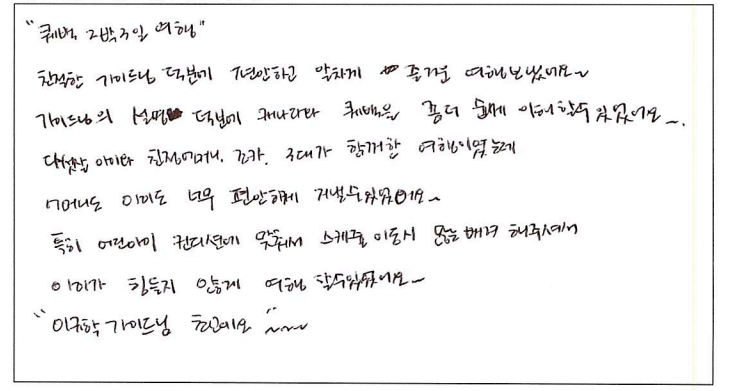 "퀘벡 2박3일 여행"
친절한 가이드님 덕분에 편안하고 알차게 즐거운 여행보냈어요~
가이드님의 설명 덕분에 캐나다와 퀘벡을 좀더 쉽게 이해할수있었어요~.
다섯살 아이와 친정어머니, 조카, 3대가 함께한 여행이였는데
어머니도 아이도 너무 편안하게 지낼수있었어요~
특히 어린아이 컨디션에 맞춰서 스케줄 이동시 많은 배려 해주셔서
아이가 힘들지 않게 여행 할수있었어요~
"이규학 가이드님 최고에요"~~~